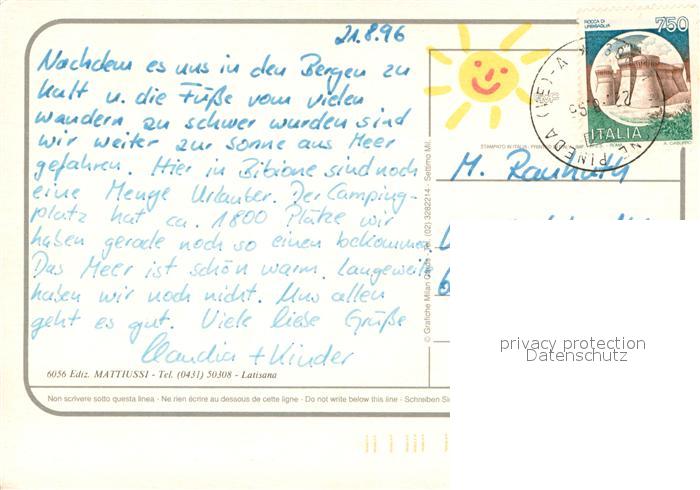 21.8.96
Nachdem es uns in den Bergen zu
kalt u. die Füße vom vielen
wandern zu schwer wurden sind
wir weiter zur Sonne ans Meer
gefahren. Hier in Bibione sind noch
eine Menge Urlauber. Der Camping-
platz hat ca. 1800 Plätze wir
haben gerade noch so einen bekommen.
Das Meer ist schön warm. Langeweile
haben wir noch nicht. Uns allen
geht es gut. Viele liebe Grüße
Claudia + Kinder
6056 Ediz. MATTIUSSI - Tel. (0431) 50308 - Latisana
Non scrivere sotto questa linea - Ne rien écrire au dessous de cette ligne - Do not write below this line - Schreiben Si
© Grafiche Milan Tel. (02) 3282214 - Settimo Mil.
ROCCA DI
URBISAGLIA
750
ITALIA
PINEDA (VE)
STAMPATO IN ITALIA
M.
privacy protection
Datenschutz